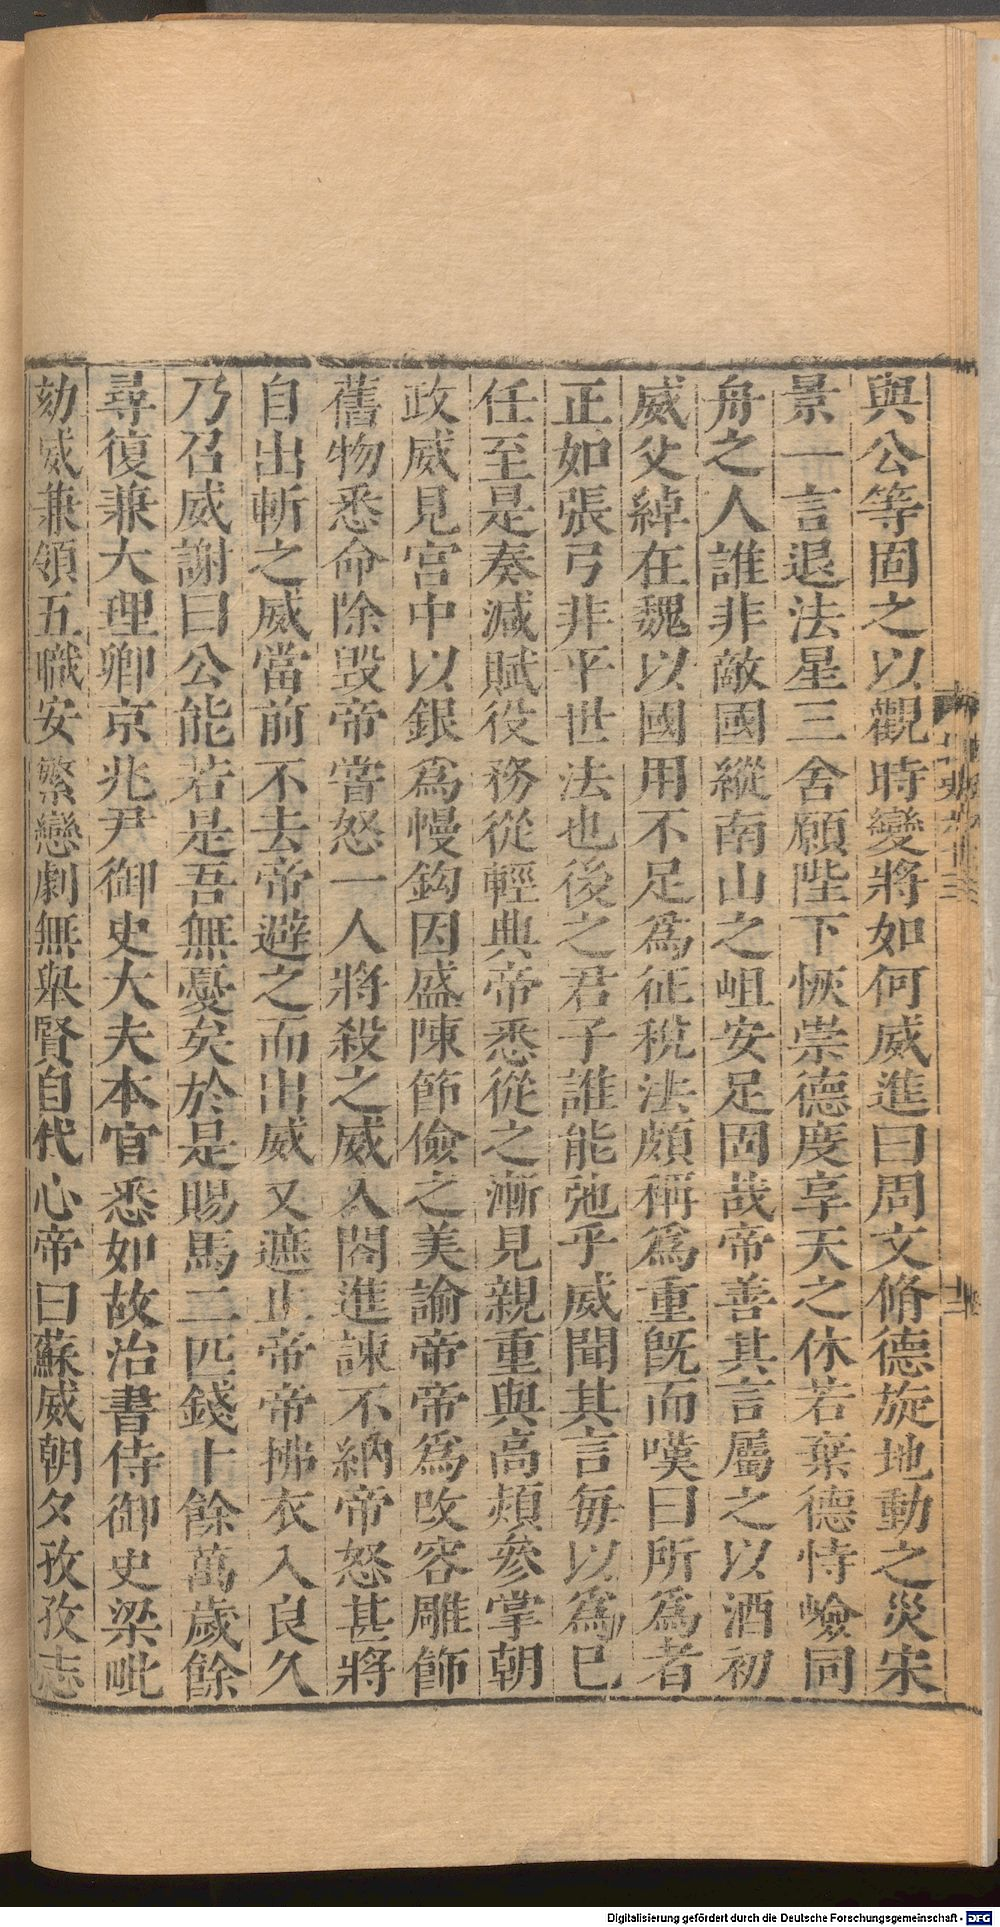 與公等固之以觀時變將如何威進曰周文脩德旋地動之災宋
景一言退法星三舍願陛下恢崇德度享天之休若棄德恃嶮同
舟之人誰非敵國縱南山之岨安足固哉帝善其言屬之以酒初
威父綽在魏以國用不足爲征稅法頗稱爲重旣而嘆曰所爲者
正如張弓非平世法也後之君子誰能弛乎威聞其言每以爲已
任至是奏減賦役務從輕典帝悉從之漸見親重與高熲參掌朝
政威見宮中以銀爲幔鈎因盛陳節儉之美諭帝帝爲改容雕飾
舊物悉命除毀帝嘗怒一人將殺之威入閤進諫不納帝怒甚將
自出斬之威當前不去帝避之而出威又遮止帝帝拂衣入良久
乃召威謝曰公能若是吾無憂矣於是賜馬二匹錢十餘萬歲餘
尋復兼大理卿京兆尹御史大夫本官悉如故治書侍御史梁毗
劾威兼領五職安繁戀劇無舉賢自代心帝曰蘇威朝夕孜孜志
Digitalisierung gefördert durch die Deutsche Forschungsgemeinschaft - DFG